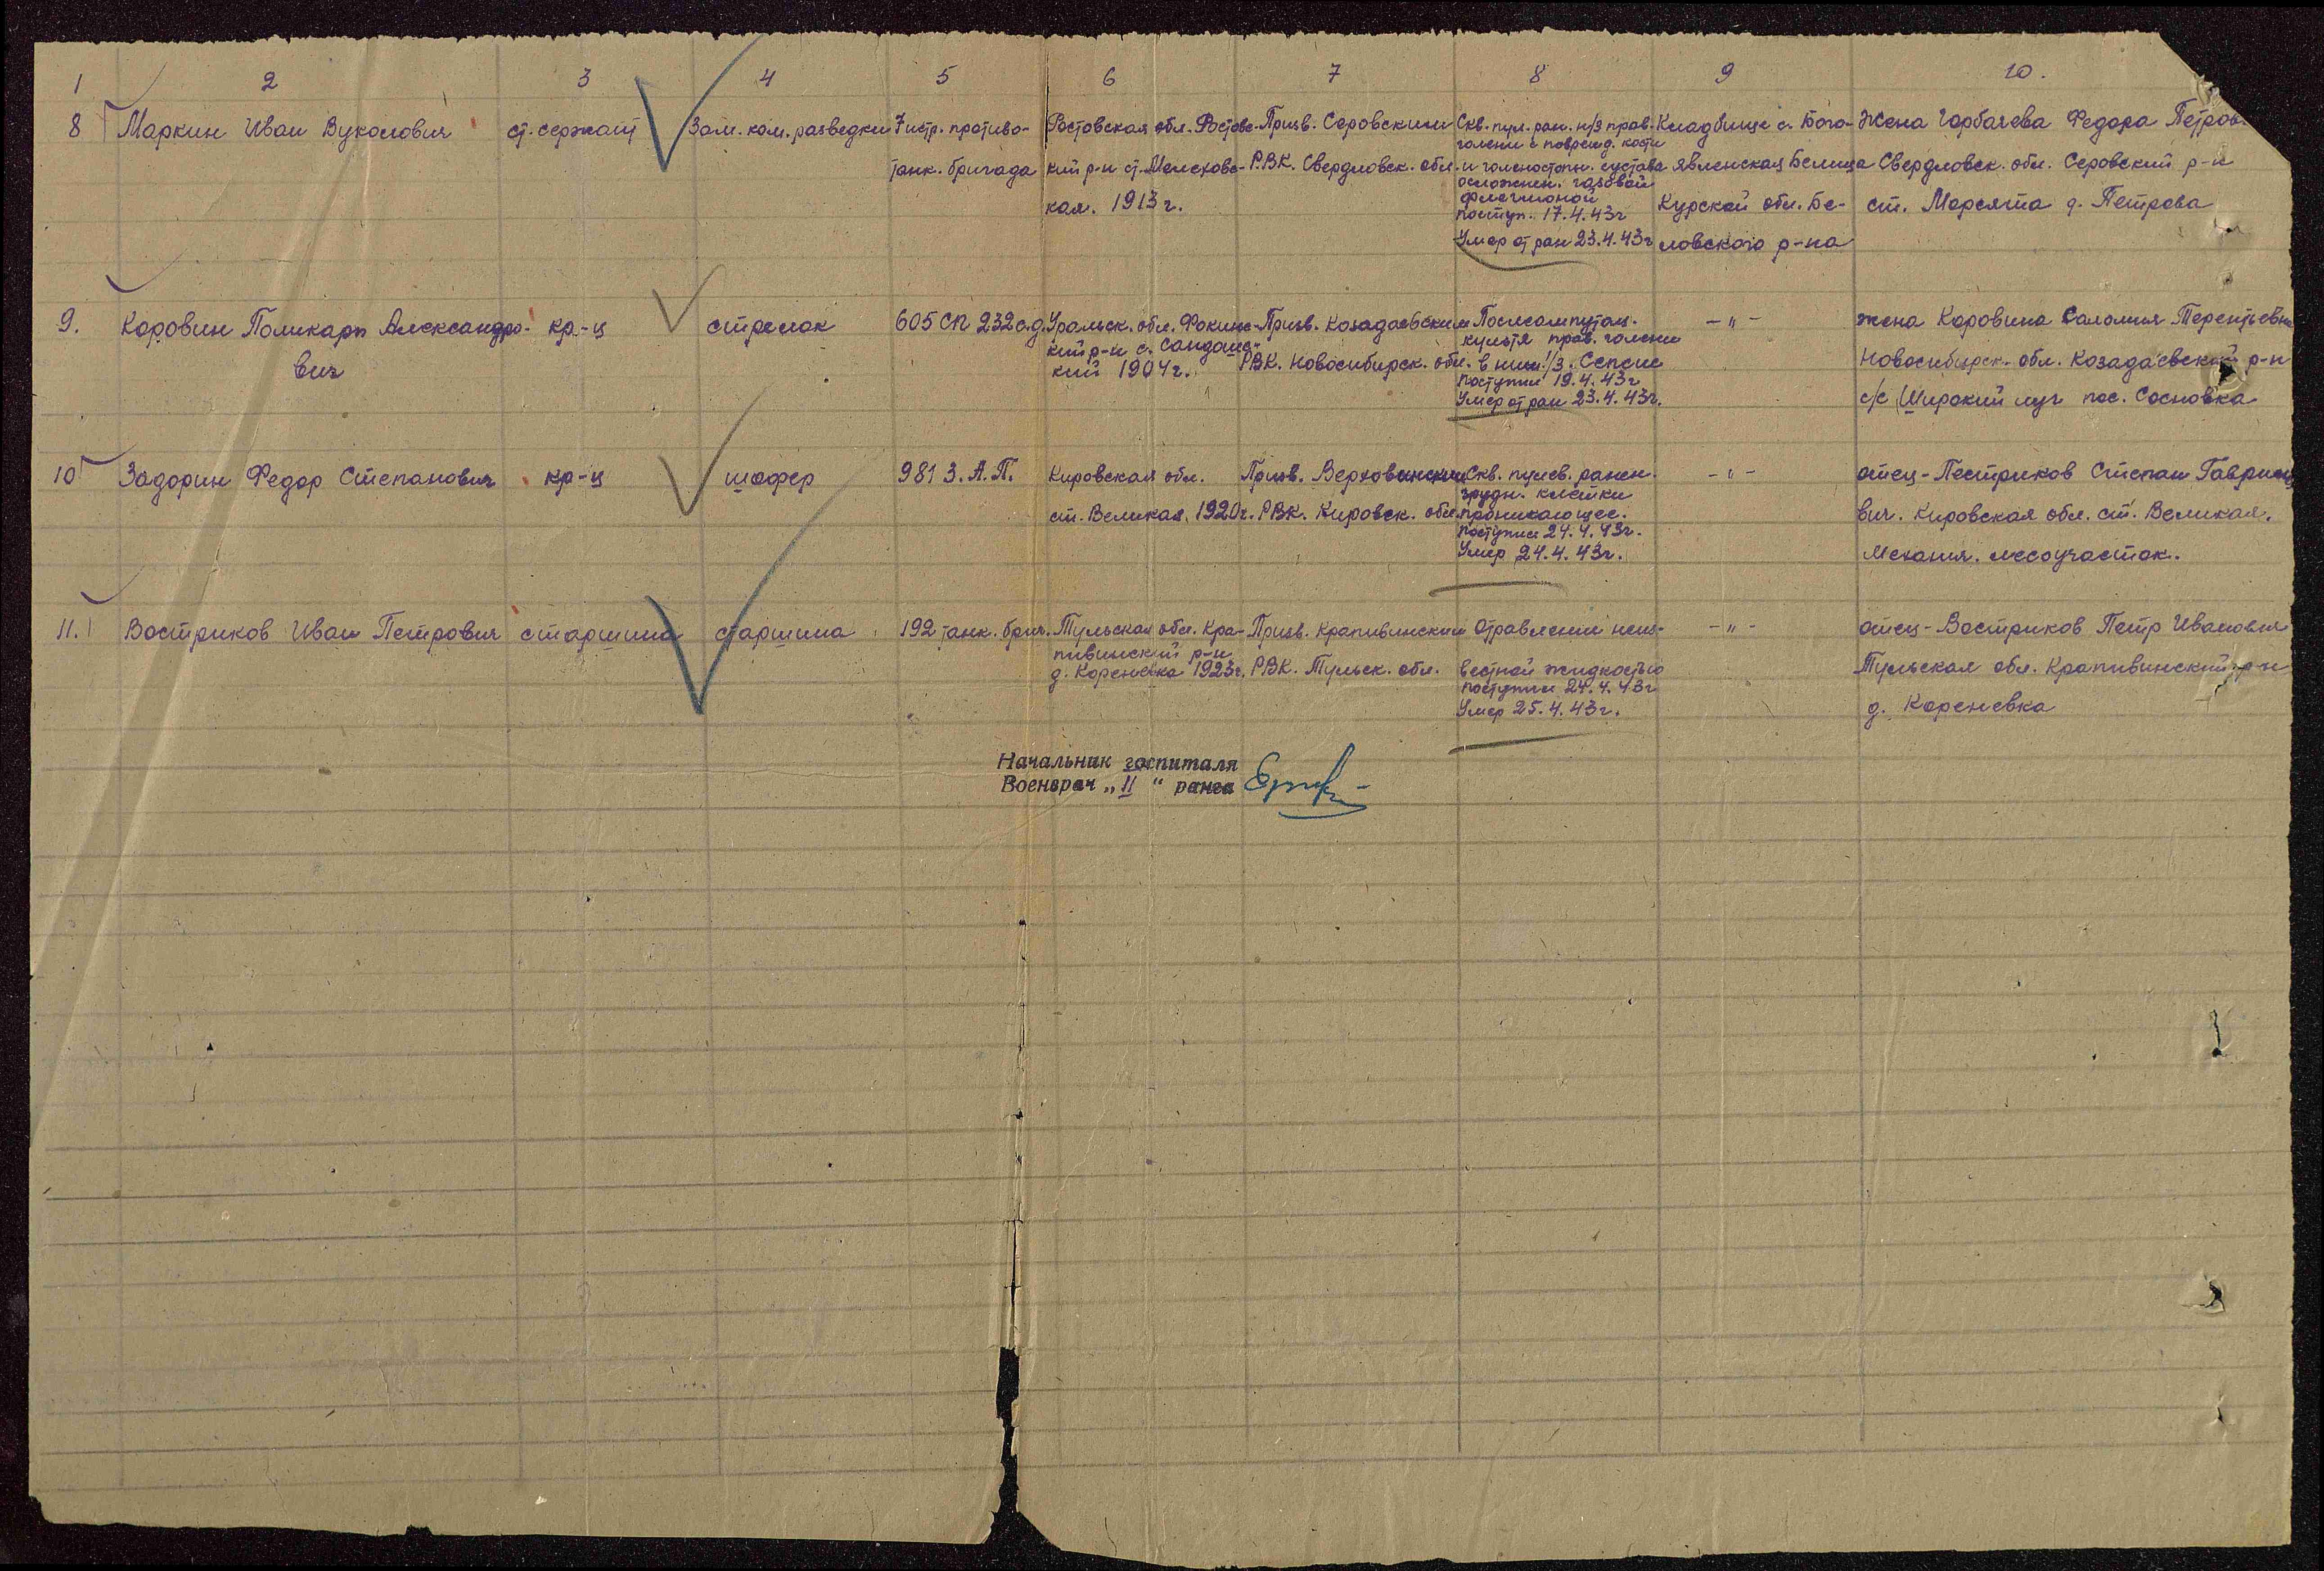 1 2 3 4 5 6 7 8 9 10.
8 Маркин Иван Вуколович ст. сержант Зам. ком. разведки 7 истр. противо- Ростовская обл. Ростовс- Призв. Серовским Скв. пул. ран. н/3 прав. Кладбище с. Бого- Жена Горбачева Федора Петров.
голени с поврежд. кости
танк. бригада кий р-н ст. Мелеховс- РВК. Свердловск. обл. и голеностопн. сустава явленская Белица Свердловск. обл. Серовский р-н
осложнен. газовой
флегмоной
кая. 1913 г. поступ. 17.4.43г Курской обл. Бе- ст. Марсята д. Петрова
Умер от ран 23.4.43г ловского р-на
9. Коровин Поликарп Александро- кр-ц стрелок 605 СП 232 с.д. Уральск. обл. Фокинс- Призв. Козадаевским Послеампутац. -"- жена Коровина Саломия Терентьевна
вич кий р-н с. культя прав. голени
кий 1904 г. РВК. Новосибирск. обл. в ниж. 1/3. Сепсис Новосибирск. обл. Козадаевский р-н
поступил 19.4.43г
Умер от ран 23.4.43г. с/с Широкий луг пос. Сосновка
10 Задорин Федор Степанович кр-ц шофер 981 З.А.П. Кировская обл. Призв. Верховинским Скв. пулев. ранен. -"- отец - Пестриков Степан Гаврило
грудн. клетки
ст. Великая, 1920г. РВК. Кировск. обл. проникающее. вич. Кировская обл. ст. Великая.
поступил 24.4.43г.
Умер 24.4.43г. Механич. лесоучасток.
11. Востриков Иван Петрович старшина старшина 192 танк. бриг. Тульская обл. Кра- Призв. Крапивинским Отравление неиз- -"- отец - Востриков Петр Иванович
пивинский р-н
д. Кореневка 1923г. РВК. Тульск. обл. вестной жидкостью Тульская обл. Крапивинский р-н
поступил 24.4.43г
Умер 25.4.43г. д. Кореневка
Начальник госпиталя
Военврач „II“ ранга